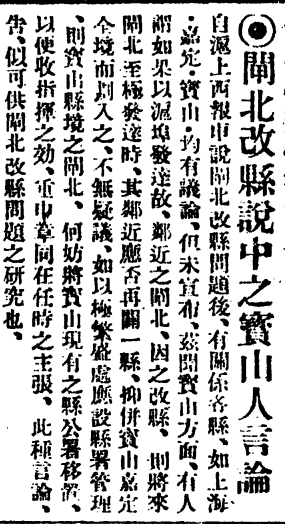 ◉閘北改縣說中之寶山人言論
自滬上西報申說閘北改縣問題後、有關係各縣、如上海
·嘉定·寶山·均有議論、但未宣布、茲聞寶山方面、有人
謂如果以滬埠發達故、鄰近之閘北、因之改縣、則將來
閘北至極發達時、其鄰近應否再闢一縣、抑併寶山嘉定
全境而劃入之、不無疑議、如以極繁盛處應設縣署管理
、則寶山縣境之閘北、何妨將寶山現有之縣公署移置、
以便收指揮之効、重申韋同在任時之主張、此種言論、
吿、似可供閘北改縣問題之研究也、